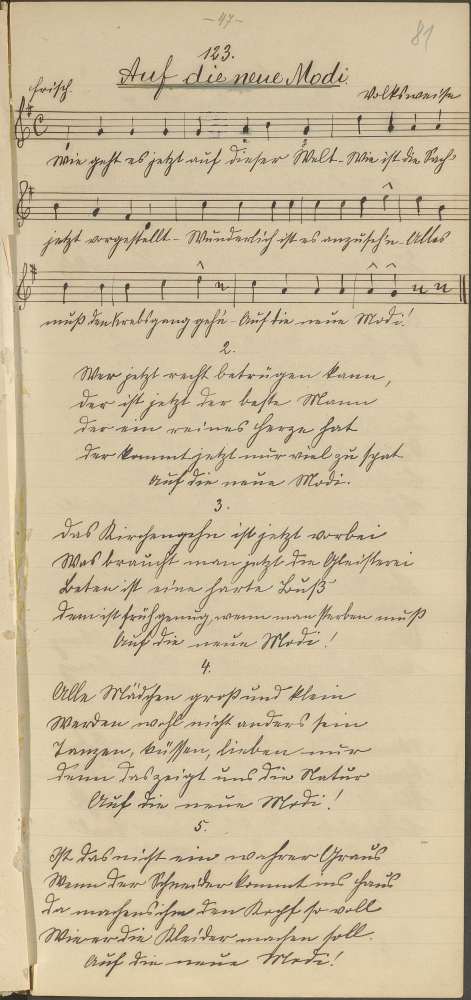 - 47 -
81
123.
Auf die neue Modi.
Frisch.
Volksweise
Wie geht es jetzt auf dieser Welt - Wie ist die Sach'
jetzt vorgestellt - Wunderlich ist es anzusehn - Alles
muß den Krebsgang gehn - Auf die neue Modi!
2.
Wer jetzt recht betrügen kann,
der ist jetzt der beste Mann
der ein reines Herze hat
der kommt jetzt nur viel zu spat
Auf die neue Modi.
3.
Das Kirchengehn ist jetzt vorbei
Was braucht man jetzt die Gleisterei
Beten ist eine harte Buß
denn ist früh genug, wenn man sterben muß
Auf die neue Modi!
4.
Alle Mädchen groß und klein
Werden wohl nicht anders sein
Tanzen, küssen, lieben nur
denn das zeigt uns die Natur
Auf die neue Modi!
5.
Ist das nicht ein wahrer Graus
Wenn der Schneider kommt ins Haus
da machens ihm den Kopf so voll
Wie er die Kleider machen soll.
Auf die neue Modi!